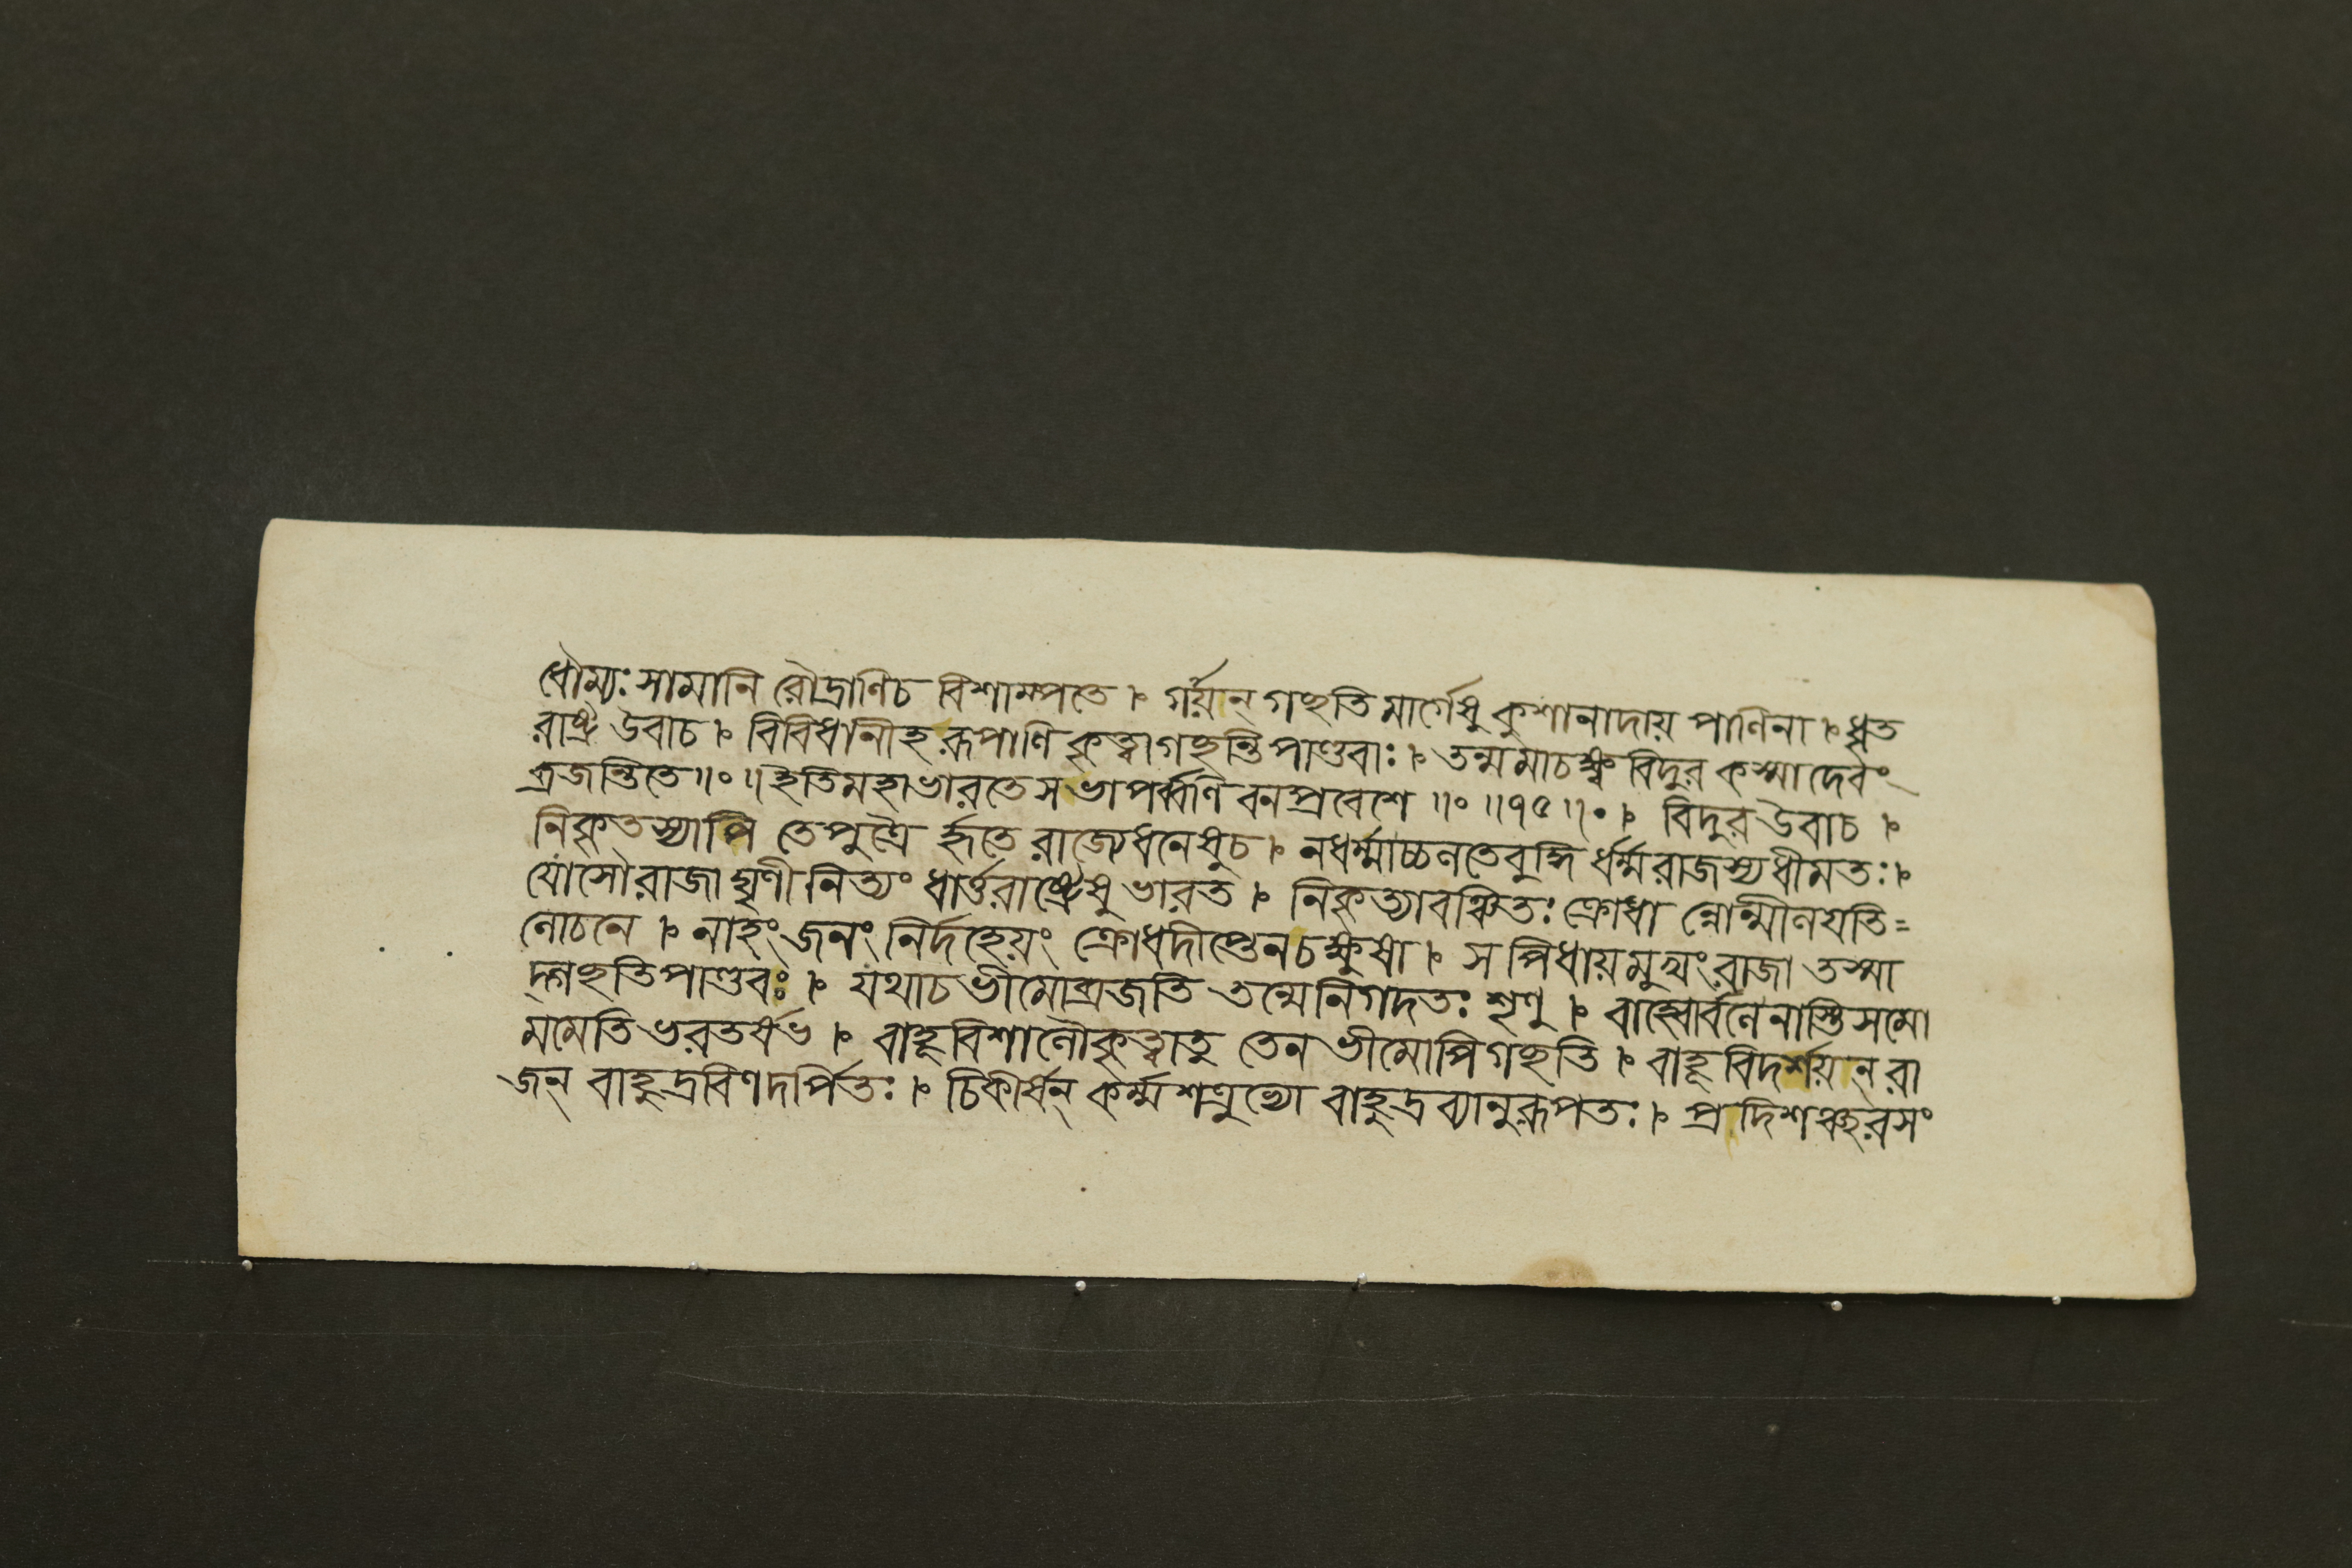 ধৌম্যঃ সামানি রৌদ্রাণিচ বিশাম্পতে । গর্য়ন্ গচ্ছতি মার্গেষু কুশানাদায় পাণিনা । ধৃত
রাষ্ট্র উবাচ । বিবিধানীহ রূপাণি কৃত্বাগচ্ছন্তি পাণ্ডবাঃ । তন্মমাচক্ষ্ব বিদুর কস্মাদেবং
ব্রজন্তিতে ॥০॥ ইতিমহাভারতে সভাপর্ব্বণি বনপ্রবেশে ॥০॥৭৫॥০। বিদুর উবাচ ।
নিকৃতস্যাপি তেপুত্রৈ র্হৃতে রাজ্যেধনেষুচ । নধর্ম্মাচ্চলতেবুদ্ধি র্ধর্ম্মরাজস্যধীমতঃ।
যোসৌরাজা ঘৃণী নিত্যং ধার্ত্তরাষ্ট্রেষু ভারত । নিকৃত্যাবঞ্চিতঃ ক্রোধা ন্নোন্মীলযতি=
লোচনে । নাহং জনং নির্দহেয়ং ক্রোধদীপ্তেনচক্ষুষা । স পিধায়মুখংরাজা তস্মা
দ্গচ্ছতিপাণ্ডবঃ । যথাচভীমোব্রজতি তন্মেনিগদতঃ শৃণু । বাহ্বোর্বলেনাস্তিসমো
মমেতি ভরতর্ষভ । বাহূবিশালৌকৃত্বাতু তেন ভীমোপিগচ্ছতি । বাহূবিদর্শয়ন্ রা
জন্ বাহুদ্রবিণদর্পিতঃ । চিকীর্ষন্ কর্ম্মশত্রুভ্যো বাহুদ্রব্যানুরূপতঃ । প্রদিশঞ্ছরসং